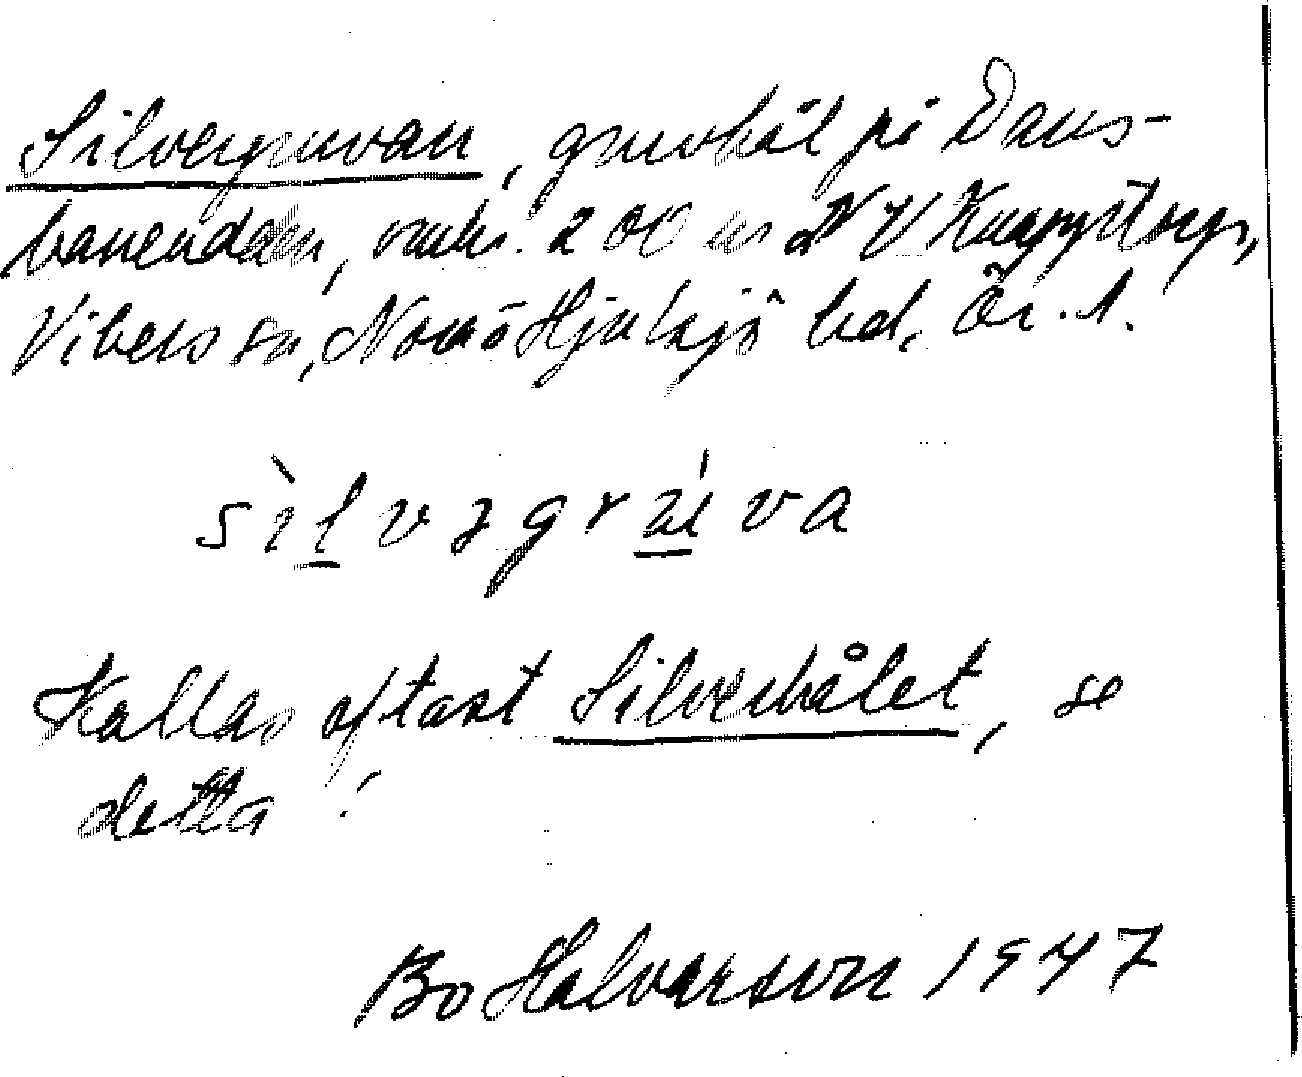 Silvergruvan, gruvhål på Dans-
banenden, omkr. 200 m NV Knapptorp,
Vibers sn, Nora o Hjulsjö bd, Ör. l.
sìlvəgrúva
Kallas oftast Silverhålet, se
detta!
Bo Halvarson 1947